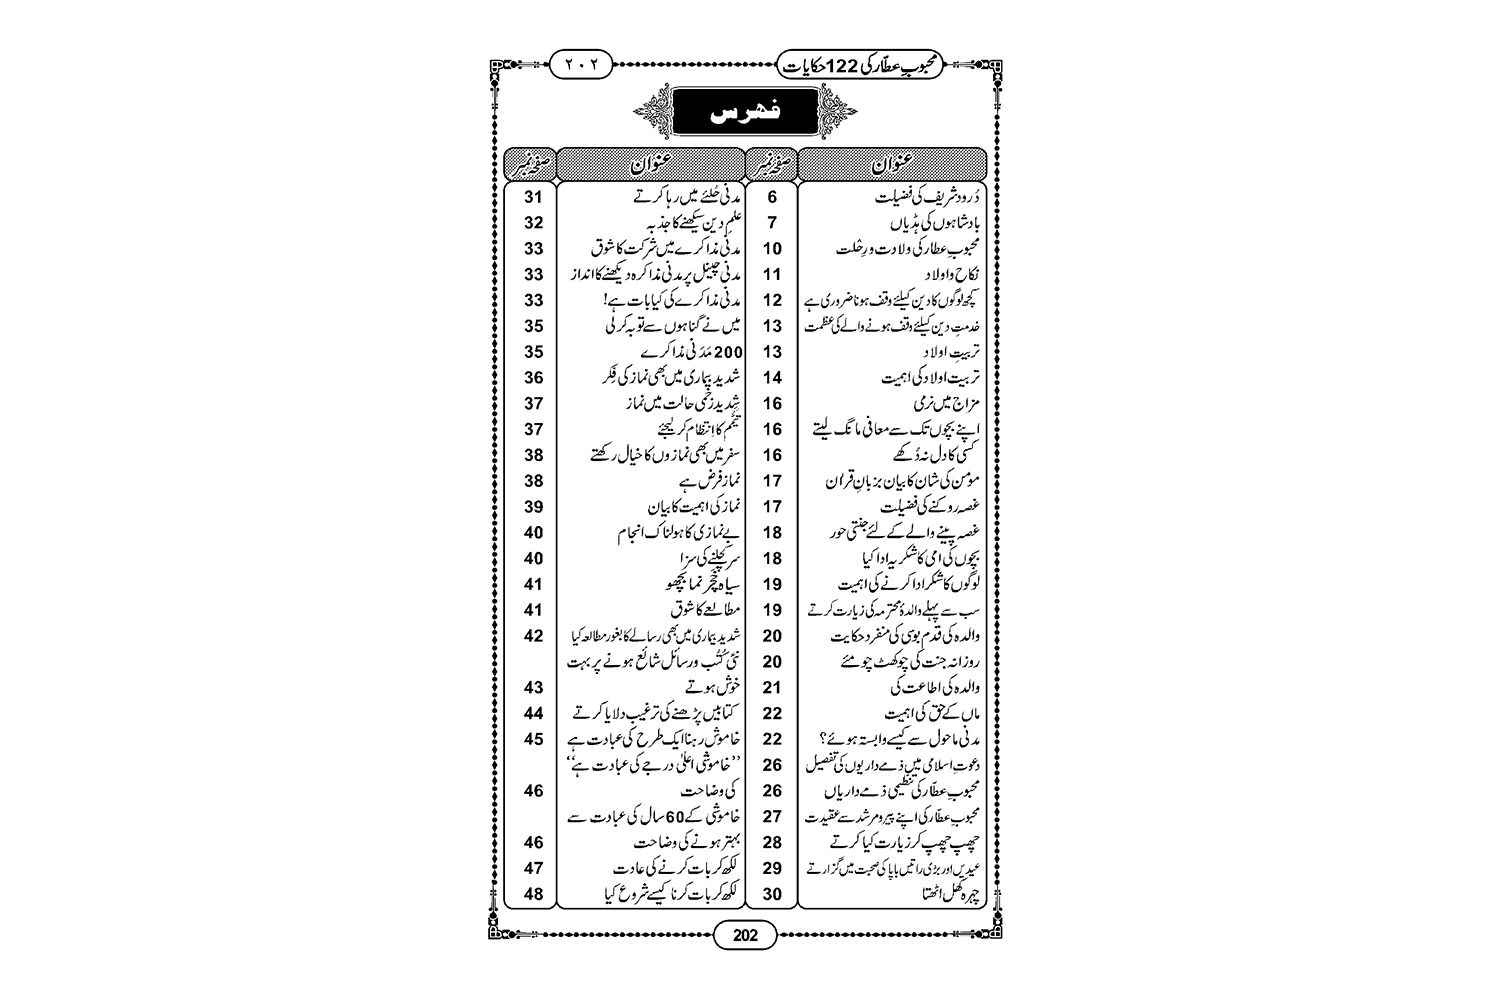 محبوبِ عطّار کی 122 حکایات
۲۰۲
فہرس
عنوان صفحہ نمبر
دُرود شریف کی فضیلت 6
بادشاہوں کی ہڈیاں 7
محبوبِ عطار کی ولادت ورِحْلت 10
نکاح و اولاد 11
کچھ لوگوں کا دین کیلئے وقف ہونا ضروری ہے 12
خدمتِ دین کیلئے وقف ہونے والے کی عظمت 13
تربیتِ اولاد 13
تربیت اولاد کی اہمیت 14
مزاج میں نرمی 16
اپنے بچوں تک سے معافی مانگ لیتے 16
کسی کا دل نہ دُکھے 16
مؤمن کی شان کا بیان بزبانِ قران 17
غصہ روکنے کی فضیلت 17
غصہ پینے والے کے لئے جنتی حور 18
بچوں کی امی کا شکریہ ادا کیا 18
لوگوں کا شکر ادا کرنے کی اہمیت 19
سب سے پہلے والدۂ محترمہ کی زیارت کرتے 19
والدہ کی قدم بوسی کی منفرد حکایت 20
روزانہ جنت کی چوکھٹ چومئے 20
والدہ کی اطاعت کی 21
ماں کے حق کی اہمیت 22
مدنی ماحول سے کیسے وابستہ ہوئے؟ 22
دعوتِ اسلامی میں ذمے داریوں کی تفصیل 26
محبوبِ عطّار کی تنظیمی ذمے داریاں 26
محبوبِ عطّار کی اپنے پیر و مرشد سے عقیدت 27
چھپ چھپ کر زیارت کیا کرتے 28
عیدیں اور بڑی راتیں باپا کی صحبت میں گزارتے 29
چہرہ کھل اٹھتا 30
عنوان صفحہ نمبر
مدنی حُلئے میں رہا کرتے 31
علمِ دین سیکھنے کا جذبہ 32
مدنی مذاکرے میں شرکت کا شوق 33
مدنی چینل پر مدنی مذاکرہ دیکھنے کا انداز 33
مدنی مذاکرے کی کیا بات ہے! 33
میں نے گناہوں سے توبہ کر لی 35
200 مَدَنی مذاکرے 35
شدید بیماری میں بھی نماز کی فِکر 36
شدید زخمی حالت میں نماز 37
تَیَمُّم کا اِنتظام کر لیجئے 37
سفر میں بھی نمازوں کا خیال رکھتے 38
نماز فرض ہے 38
نماز کی اہمیت کا بیان 39
بے نمازی کا ہولناک انجام 40
سر کچلنے کی سزا 40
سیاہ خچر نما بچھو 41
مطالعے کا شوق 41
شدید بیماری میں بھی رسالے کا بغور مطالعہ کیا 42
نئی کُتُب و رسائل شائع ہونے پر بہت
خوش ہوتے 43
کتابیں پڑھنے کی ترغیب دلایا کرتے 44
خاموش رہنا ایک طرح کی عبادت ہے 45
’’خاموشی اعلیٰ درجے کی عبادت ہے‘‘
کی وضاحت 46
خاموشی کے 60 سال کی عبادت سے
بہتر ہونے کی وضاحت 46
لکھ کر بات کرنے کی عادت 47
لکھ کر بات کرنا کیسے شروع کیا 48
202